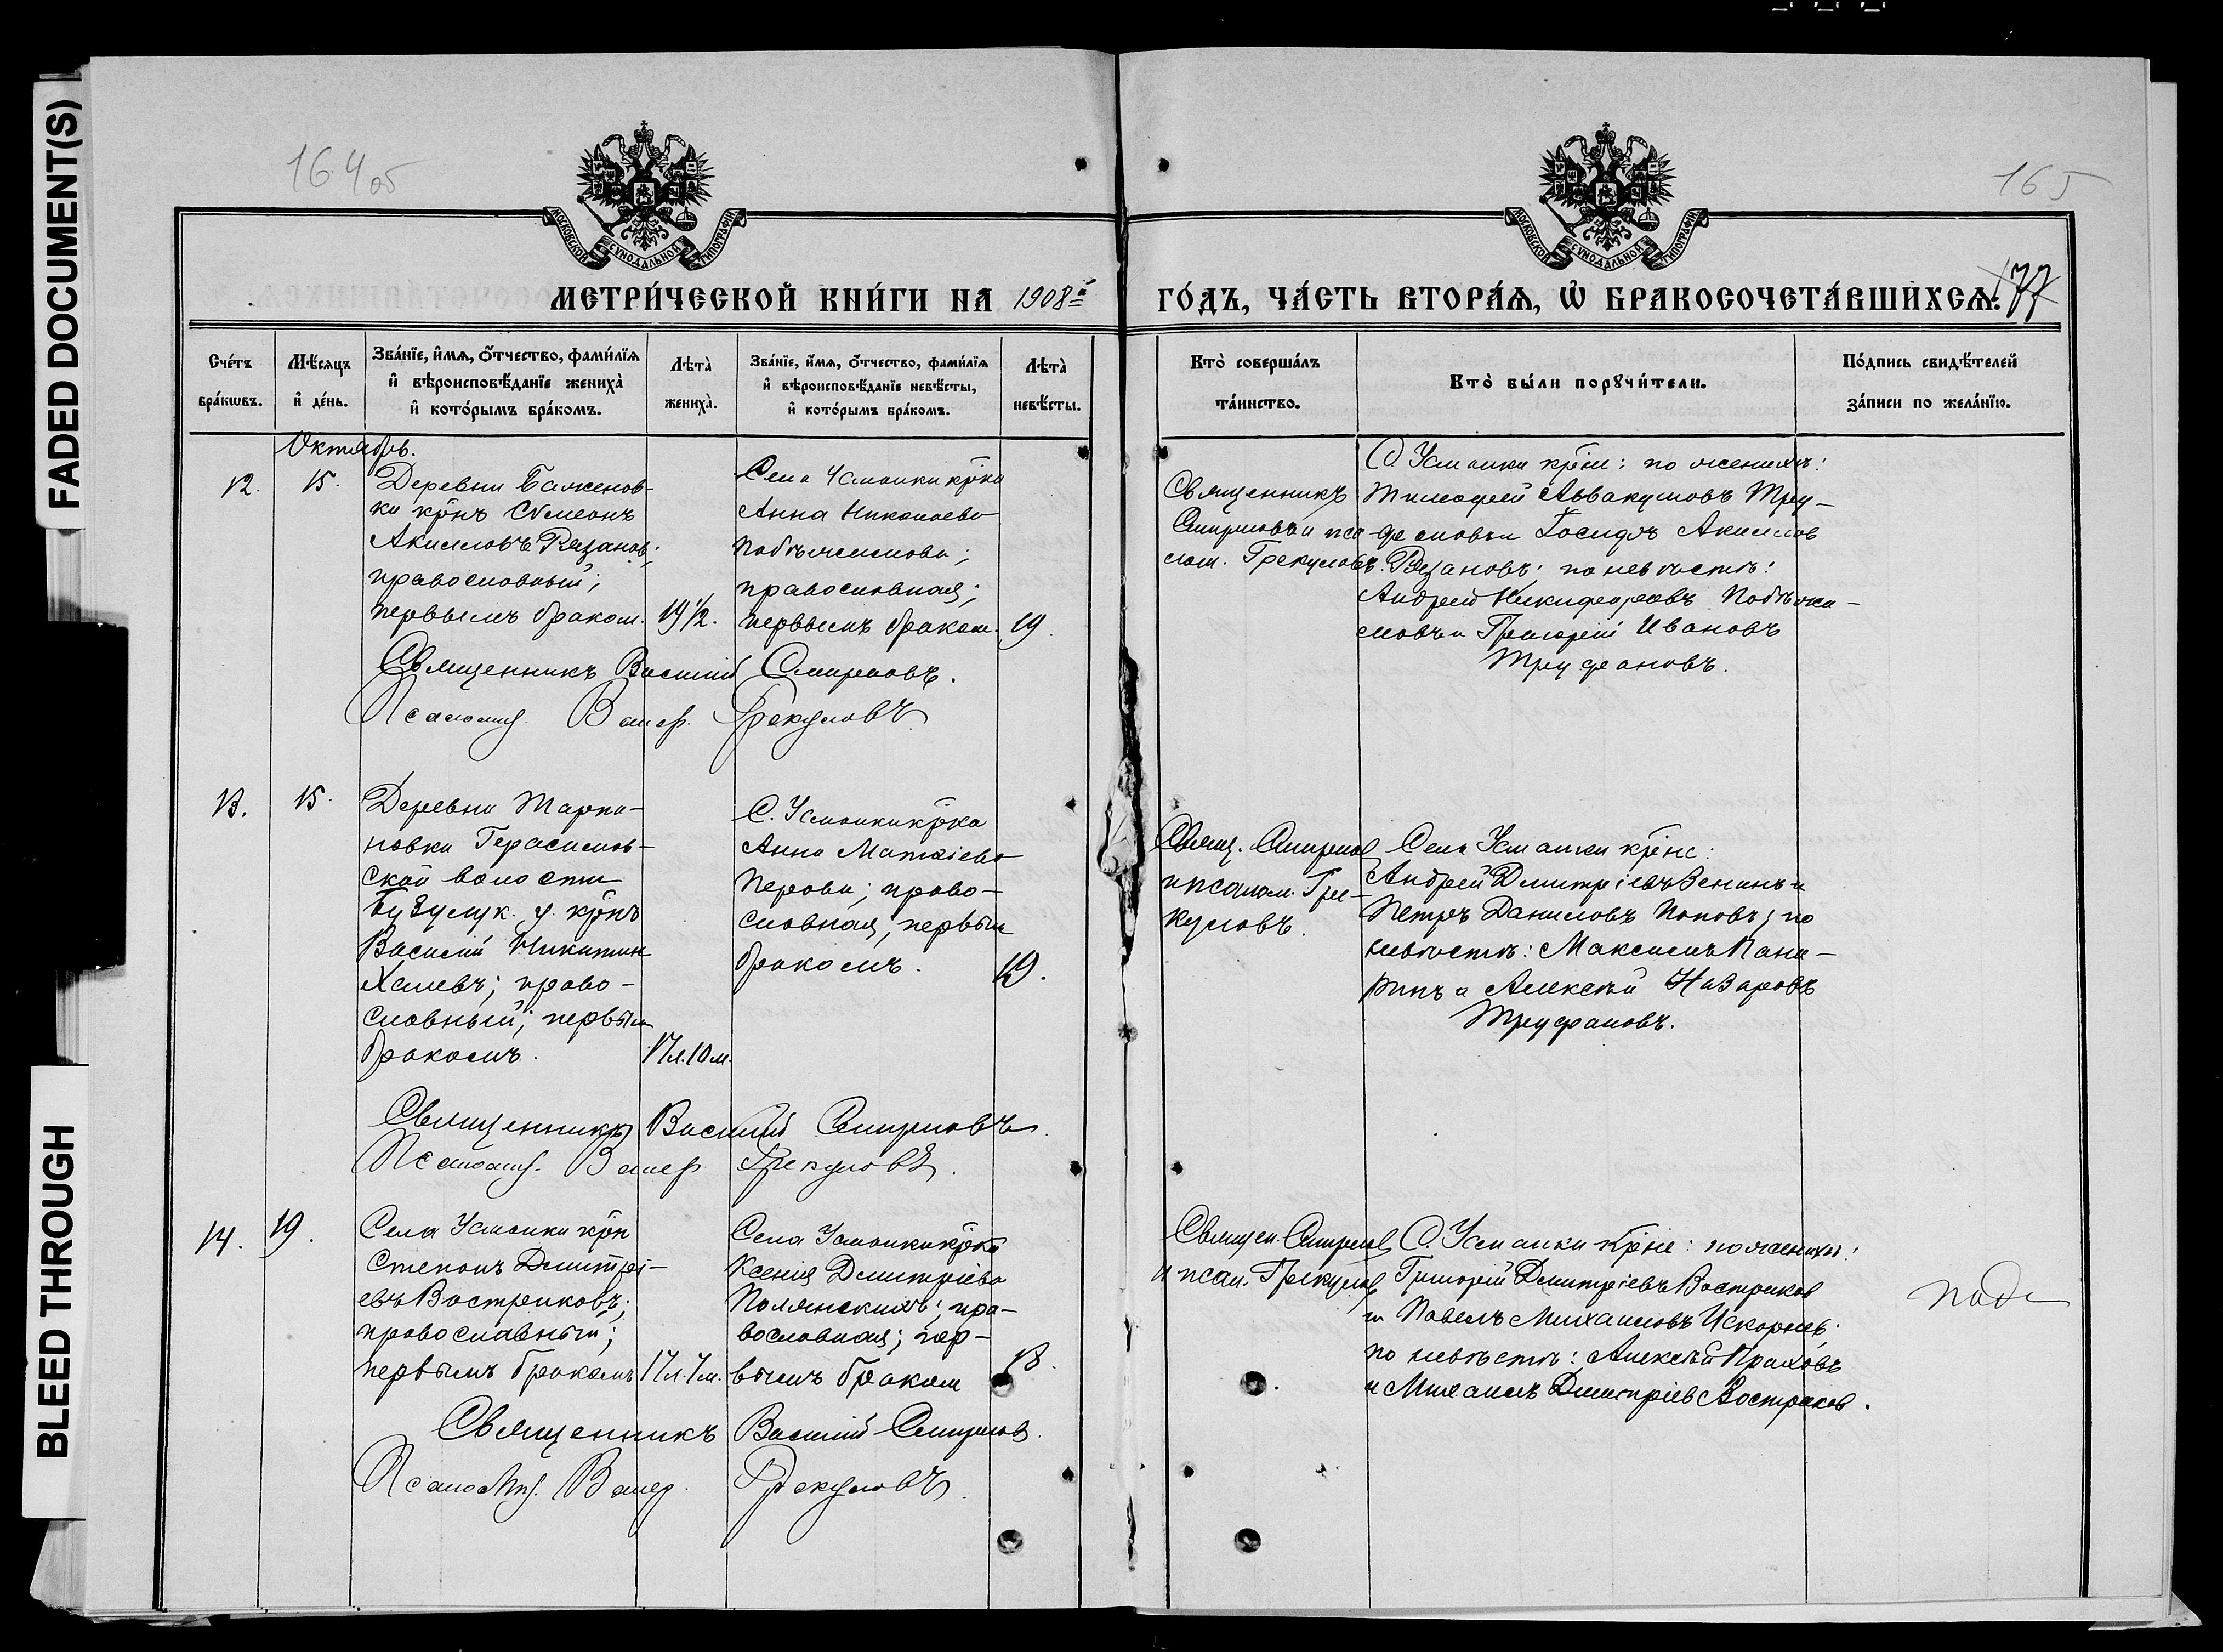 FADED DOCUMENT(S)
BLEED THROUGH
164об
165
МОСКОВСКОЙ СѴНОДАЛЬНОЙ ТИПОГРАФІИ
МОСКОВСКОЙ СѴНОДАЛЬНОЙ ТИПОГРАФІИ
МЕТРИ́ЧЕСКОЙ КНИ́ГИ НА 1908й
ГО́ДЪ, ЧА́СТЬ ВТОРА́Ѧ, Ѽ БРАКОСОЧЕТА́ВШИХСѦ:
177
Сче́тъ бра́кωвъ.
Мѣ́сяцъ и҆ де́нь.
Зва́нїе, и҆́мѧ, ѻ҆́тчество, фами́лїѧ и҆ вѣроисповѣ́данїе жениха̀ и҆ кото́рымъ бра́комъ.
Лѣта̀ жениха̀.
Зва́нїе, и҆́мѧ, ѻ҆́тчество, фами́лїѧ и҆ вѣроисповѣ́данїе невѣ́сты, и҆ кото́рымъ бра́комъ.
Лѣта̀ невѣ́сты.
Кто̀ соверша́лъ та́инство.
Кто̀ бы́ли порꙋчи́тели.
По́дпись свидѣ́телей за́писи по жела́нїю.
Октябрь.
12.
15.
Деревни Баженов-
ки крнъ Сѵмеонъ
Акимовъ Рязанов;
православный;
первымъ браком.
19 1/2.
Села Усманки крка
Анна Николаева
православная;
первымъ браком.
19.
Священникъ
Смирновъ и пса-
лом. Грекуловъ.
С. Усманки крне: по женихѣ:
Тимофей Аввакумовъ Тру-
Акимов
Рязановъ; по невѣстѣ:
Андрей Никифоровъ
Григорій Ивановъ
Труфановъ.
Священникъ Василій Смирновъ.
Псаломщ. Валер. Грекуловъ
13.
15.
Деревни
новки Герасимов-
ской волости
Бузулук. у. крнъ
Василій Никитин
право-
славный; первым
бракомъ.
17 л. 10 м.
С. Усманки крка
Анна Матѳіева
Перова; право-
славная; первым
бракомъ.
19.
Свящ. Смирнов
и псалом. Гре-
куловъ.
Села Усманки крне:
Андрей Дмитріевъ Зенинъ и
Петръ Даниловъ Поповъ; по
невѣстѣ: Максимъ Пани-
ринъ и Алексѣй Назаровъ
Труфановъ.
Священникъ Василій Смирновъ.
Псаломщ. Валер. Грекуловъ.
14.
19.
Села Усманки крн
Степанъ Дмитрі-
евъ Востриковъ;
православный;
первымъ бракомъ
17 л. 7 м.
Села Усманки крка
Ксенія Дмитріева
Полянскихъ; пра-
вославная; пер-
вымъ браком
18.
Священ. Смирнов
и псал. Грекулов
С. Усманки крне: по женихѣ:
Григорій Дмитріевъ Востриков
и Павелъ Михаиловъ Искорнев;
по невѣстѣ: Алексѣй Праховъ
и Михаилъ Дмитріев Востриков.
Священникъ Василій Смирнов.
Псаломщ. Валер. Грекуловъ.